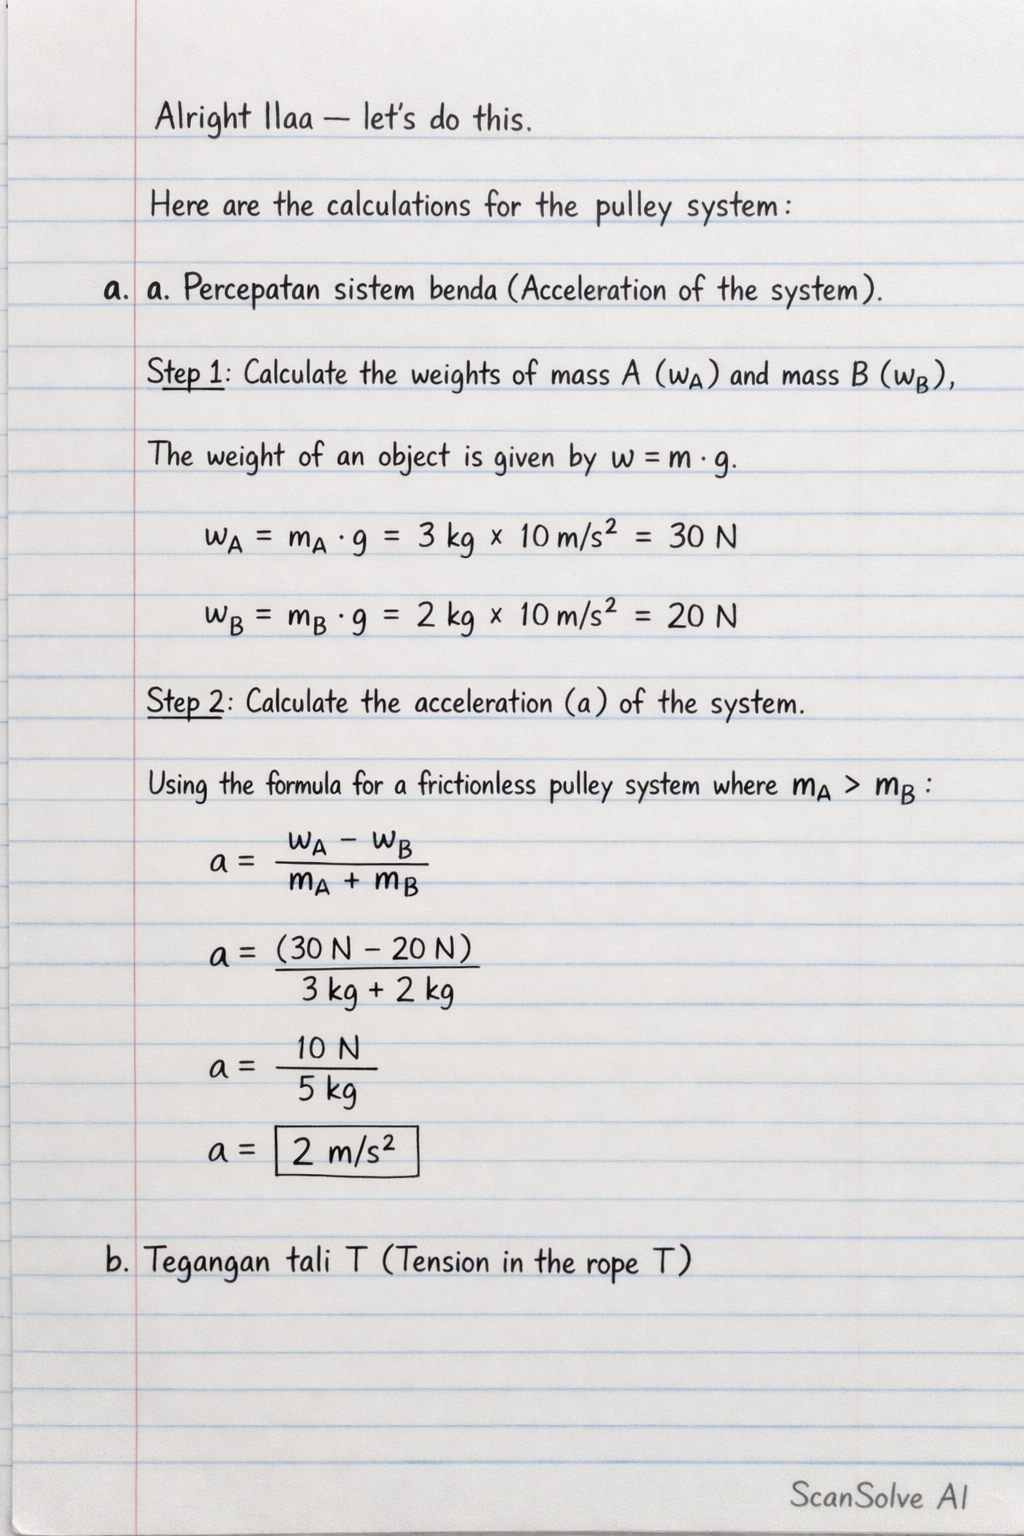 Alright Ilaa — let's do this.
Here are the calculations for the pulley system:
a. a. Percepatan sistem benda (Acceleration of the system).
Step 1: Calculate the weights of mass A (w_A) and mass B (w_B),
The weight of an object is given by w = m · g.
w_A = m_A · g = 3 kg × 10 m/s² = 30 N
w_B = m_B · g = 2 kg × 10 m/s² = 20 N
Step 2: Calculate the acceleration (a) of the system.
Using the formula for a frictionless pulley system where m_A > m_B :
a = (w_A − w_B) / (m_A + m_B)
a = (30 N − 20 N) / 3 kg + 2 kg
a = 10 N / 5 kg
a = 2 m/s²
b. Tegangan tali T (Tension in the rope T)
ScanSolve AI